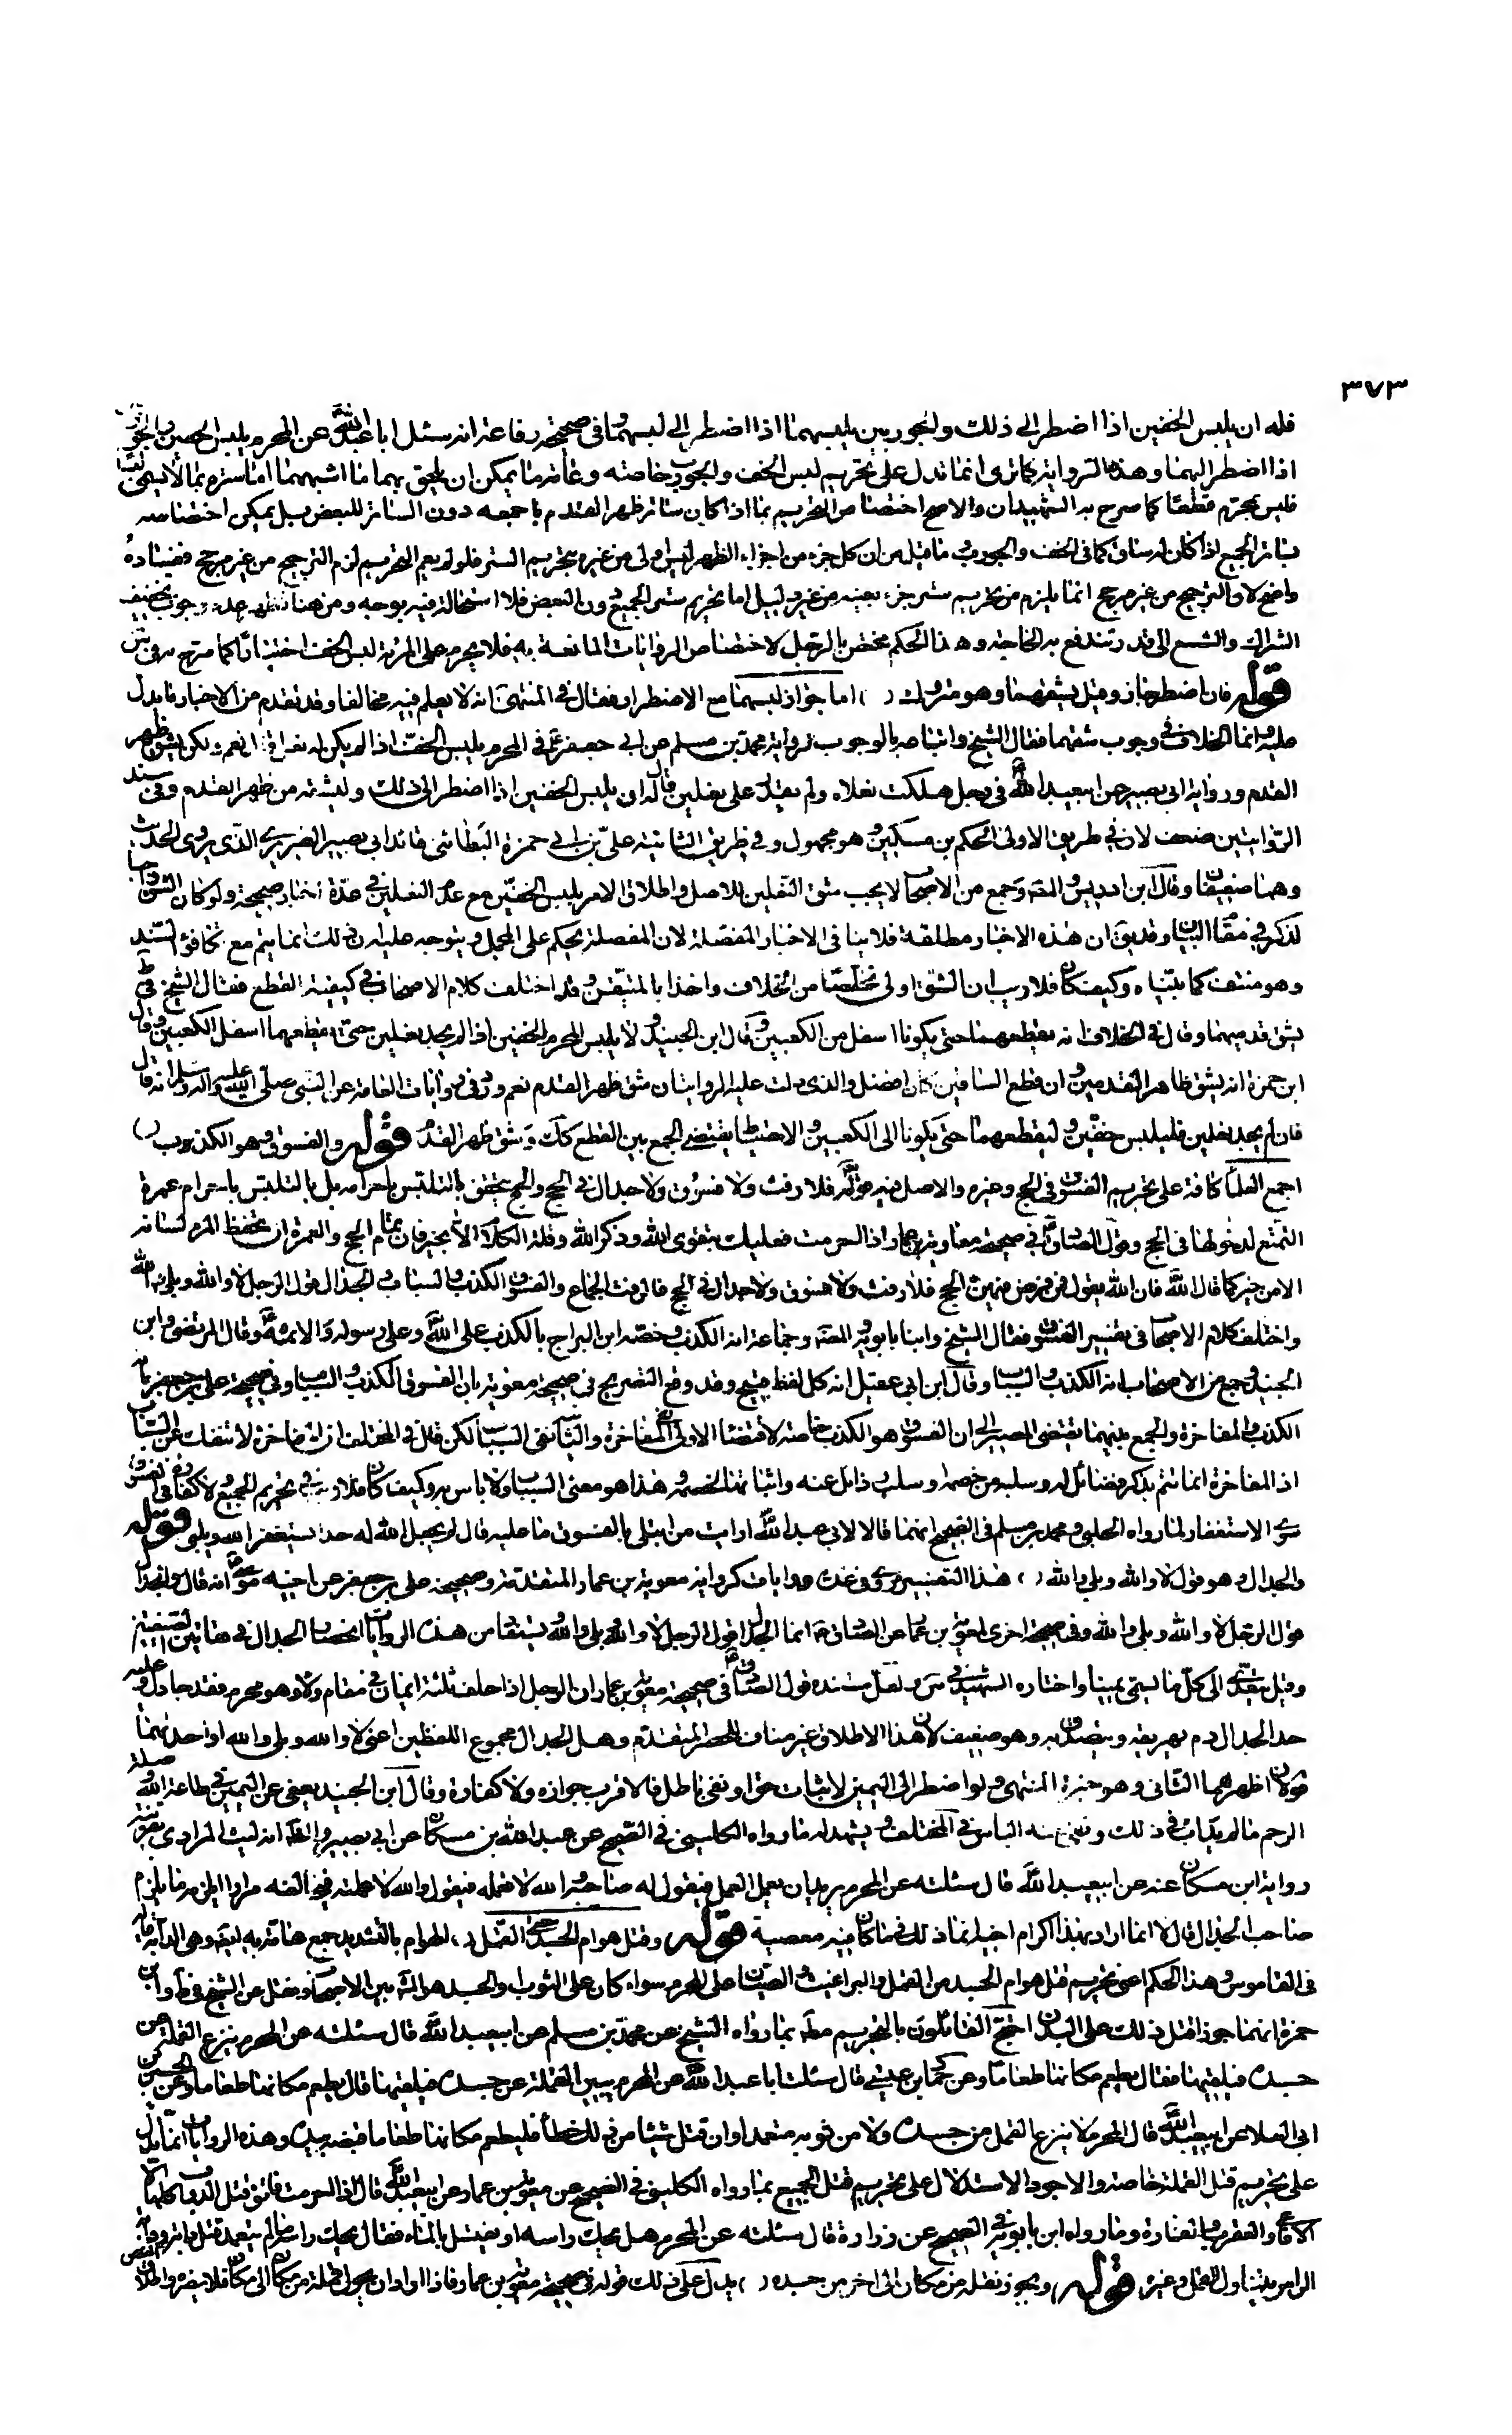 ٣٧٣
فله ان يلبس الخفين اذا اضطر الى ذلك والجوربين يلبسهما اذا اضطر الى لبسهما وفى صحيحة رفاعة انه سئل ابا عبد الله عن المحرم يلبس الخفين والجوربين
اذا اضطر اليهما وهذه الرواية كما ترى انما تدل على تحريم لبس الخف والجورب خاصة وغاية ما يمكن ان يلحق بهما ما اشبههما اما ستره بما لا يسمى لبسا
فليس بمحرم قطعا كما صرح به الشهيدان والاصح اختصاص التحريم بما اذا كان ساتر ظهر القدم باجمعه دون الساتر للبعض بل يمكن اختصاصه
بساتر الجميع اذا كان له ساق كما فى الخف والجورب وما قيل من ان كل جزء من اجزاء الظهر ليس اولى من غيره بتحريم الستر فلو لم يعم التحريم لزم الترجيح من غير مرجح ففساده
واضح لان الترجيح من غير مرجح انما يلزم من تحريم ستر جزء بعينه من غير دليل اما تحريم ستر الجميع دون البعض فلا استحالة فيه بوجه ومن هنا يظهر عدم وجوب تخفيف
الشراك والشسع الى قدر تندفع به الحاجة وهذا الحكم مختص بالرجل لاختصاص الروايات المانعة به فلا يحرم على المرأة لبس الخف اختيارا كما صرح به
قوله فان اضطر جاز وقيل يشقهما وهو متروك ( ) اما جواز لبسهما مع الاضطرار فقال فى المنتهى انه لا يعلم فيه مخالفا وقد تقدم من الاخبار ما يدل
عليه وانما الخلاف فى وجوب شقهما فقال الشيخ واتباعه بالوجوب لرواية محمد بن مسلم عن ابى جعفر ع فى المحرم يلبس الخف اذا لم يكن له نعل قال نعم ولكن يشق ظهر
القدم ورواية ابى بصير عن ابيعبد الله ع فى رجل هلكت نعلاه ولم يقدر على نعلين قال له ان يلبس الخفين اذا اضطر الى ذلك وليشقه من ظهر القدم وفى سند
الروايتين ضعف لان فى طريق الاولى الحكم بن مسكين وهو مجهول وفى طريق الثانية على بن ابى حمزة البطائنى قائد ابى بصير الضرير الذى يروى الحديث
وهما ضعيفان وقال ابن ادريس والمصنف وجمع من الاصحاب لا يجب شق النعلين للاصل واطلاق الامر بلبس الخفين مع عدم النعلين فى عدة اخبار صحيحة ولو كان الشق واجبا
لذكر فى مقام البيان وقد يقال ان هذه الاخبار مطلقة فلا ينافى الاخبار المفصلة لان المفصلة يحكم على المجمل ويتوجه عليه ان ذلك انما يتم مع تكافؤ السند
وهو منتف كما بيناه وكيف كان فلا ريب ان الشق اولى تخلصا من الخلاف واخذا بالمتيقن وقد اختلف كلام الاصحاب فى كيفية القطع فقال الشيخ فى ط
يشق قدميهما وقال فى الخلاف انه يقطعهما حتى يكونا اسفل من الكعبين وقال ابن الجنيد ولا يلبس المحرم الخفين اذا لم يجد نعلين حتى يقطعهما اسفل الكعبين وقال
ابن حمزة انه يشق ظاهر القدمين وان قطع الساقين كان افضل والذى دلت عليه الروايتان شق ظهر القدم نعم ورد فى روايات العامة عن النبى صلى الله عليه واله وسلم انه قال
فان لم يجد نعلين فليلبس خفين وليقطعهما حتى يكونا الى الكعبين والاحتياط يقتضى الجمع بين القطع كذلك وشق ظهر القدم قوله والفسوق وهو الكذب ( )
اجمع العلماء كافة على تحريم الفسوق فى الحج وغيره والاصل فيه قوله تع فلا رفث ولا فسوق ولا جدال فى الحج والحج يتحقق بالتلبس باحرامه بل بالتلبس باحرام عمرة
التمتع لدخولها فى الحج وقول الصادق ع فى صحيحة معاوية بن عمار اذا احرمت فعليك بتقوى الله وذكر الله وقلة الكلام الا بخير فان تمام الحج والعمرة ان يحفظ المرء لسانه
الا من خير كما قال الله تع فان الله يقول فمن فرض فيهن الحج فلا رفث ولا فسوق ولا جدال فى الحج فالرفث الجماع والفسوق الكذب والسباب والجدال قول الرجل لا والله وبلى والله
واختلف كلام الاصحاب فى تفسير الفسوق فقال الشيخ وابنا بابويه والمصنف وجماعة انه الكذب وخصه ابن البراج بالكذب على الله تع وعلى رسوله والائمة ع وقال المرتضى وابن
الجنيد وجمع من الاصحاب انه الكذب والسباب وقال ابن ابى عقيل انه كل لفظ قبيح وقد وقع التصريح فى صحيحة معوية بان الفسوق الكذب والسباب وفى صحيحة على بن جعفر بانه
الكذب والمفاخرة والجمع بينهما يقتضى المصير الى ان الفسوق هو الكذب خاصة لاقتضاء الاولى نفى المفاخرة والثانية نفى السباب لكن قال فى المختلف ان المفاخرة لا تنفك عن السباب
اذ المفاخرة انما تتم بذكر فضائل له وسلبها من خصمه او سلب رذائل عنه واثباتها لخصمه وهذا هو معنى السباب ولا باس به وكيف كان فلا ريب فى تحريم الجميع ولا كفارة فى الفسوق
سوى الاستغفار لما رواه الحلبى ومحمد بن مسلم فى الصحيح انهما قالا لابى عبد الله ع ارايت من ابتلى بالفسوق ما عليه قال لم يجعل الله له حدا يستغفر الله ويلبى قوله
والجدال وهو قول لا والله وبلى والله ( ) هذا التفسير مروى فى عدة روايات كرواية معوية بن عمار المتقدمة وصحيحة على بن جعفر عن اخيه موسى ع انه قال والجدال
قول الرجل لا والله وبلى والله وفى صحيحة اخرى لمعوية بن عمار عن الصادق ع انما الجدال قول الرجل لا والله وبلى والله ويستفاد من هذه الروايات انحصار الجدال فى هاتين الصيغتين
وقيل يتعدى الى كل ما يسمى يمينا واختاره الشهيد فى س ولعل مستنده قول الصادق ع فى صحيحة معوية بن عمار ان الرجل اذا حلف ثلثة ايمان فى مقام ولاء وهو محرم فقد جادل وعليه
حد الجدال دم يهريقه ويتصدق به وهو ضعيف لان هذا الاطلاق غير مناف للحصر المتقدم وهل الجدال مجموع اللفظين اعنى لا والله وبلى والله او احدهما
قولان اظهرهما الثانى وهو خيرة المنتهى ولو اضطر الى اليمين لاثبات حق او نفى باطل فالاقرب جوازه ولا كفارة وقال ابن الجنيد يعفى عن اليمين فى طاعة الله وصلة
الرحم ما لم يداب فى ذلك ونفى عنه الباس فى المختلف ويشهد له ما رواه الكلينى فى الصحيح عن عبد الله بن مسكان عن ابى بصير والظ انه ليث المرادى بقرينة
رواية ابن مسكان عنه عن ابيعبد الله ع قال سئلته عن المحرم يريد ان يعمل العمل فيقول له صاحبه والله لا تعمله فيقول والله لاعملنه فيحالفه مرارا ايلزمه ما يلزم
صاحب الجدال قال لا انما اراد بهذا اكرام اخيه انما ذلك فيما كان فيه معصية قوله وقتل هوام الجسد حتى القمل ( ) الهوام بالتشديد جمع هامة به ايضا وهى الدابة قاله
فى القاموس وهذا الحكم اعنى تحريم قتل هوام الجسد من القمل والبراغيث والصيبان على المحرم سواء كان على الثوب او الجسد هو المشهور بين الاصحاب ونقل عن الشيخ فى ط وابن
حمزة انهما جوزا قتل ذلك على البدن احتج القائلون بالتحريم مطلقا بما رواه الشيخ عن محمد بن مسلم عن ابيعبد الله ع قال سئلته عن المحرم ينزع القملة من
جسده فيلقيها فقال يطعم مكانها طعاما وعن حماد بن عيسى قال سئلت ابا عبد الله ع عن المحرم يبين القملة عن جسده فيلقيها قال يطعم مكانها طعاما وعن الحسين بن
ابى العلا عن ابيعبد الله ع قال المحرم لا ينزع القمل من جسده ولا من ثوبه متعمدا وان قتل شيئا من ذلك خطأ فليطعم مكانها طعاما قبضة بيده وهذه الروايات انما تدل
على تحريم قتل القملة خاصة والاجود الاستدلال على تحريم قتل الجميع بما رواه الكلينى فى الصحيح عن معوية بن عمار عن ابيعبد الله ع قال اذا احرمت فاتق قتل الدواب كلها الا
الافعى والعقرب والفارة وما رواه ابن بابويه فى الصحيح عن زرارة قال سئلته عن المحرم هل يحك راسه او يغتسل بالماء فقال يحك راسه ما لم يتعمد قتل دابة
قوله ويجوز نقله من مكان الى اخر من جسده ( ) يدل على ذلك قوله فى صحيحة معوية بن عمار فاذا اراد ان يحول قملة من مكان الى مكان فلا يضره واطلاق النص